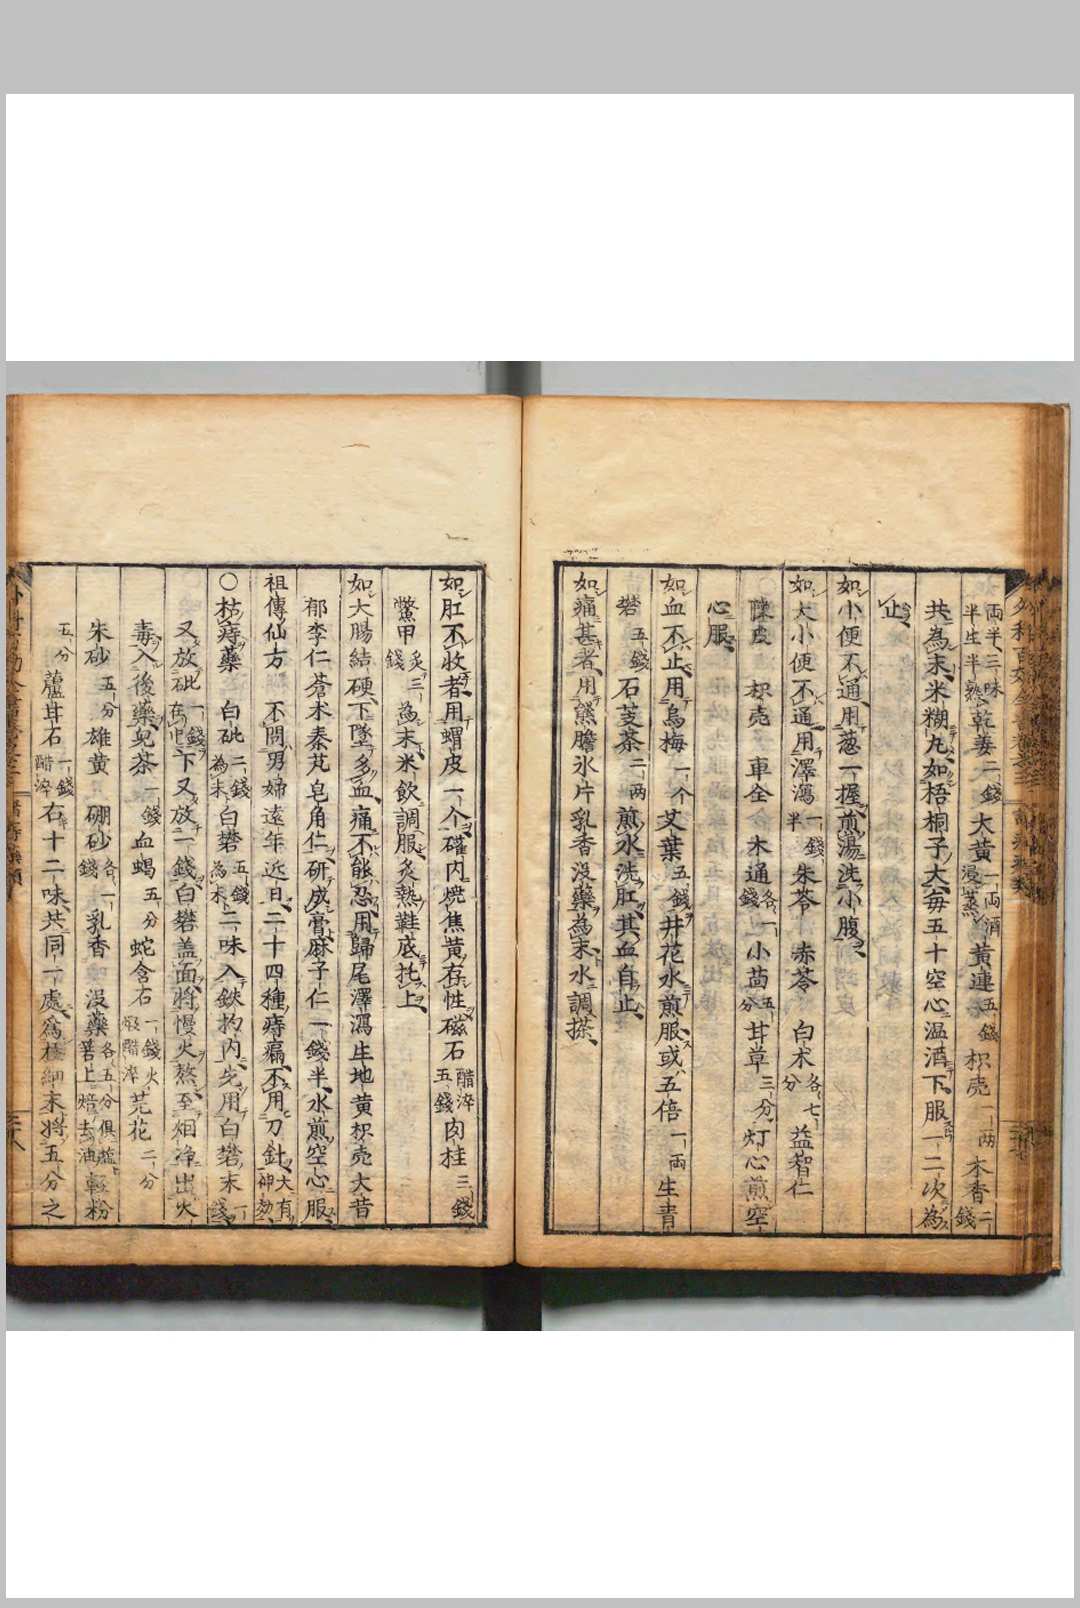 両半三味半生半熟乾姜二錢大黄一両酒浸蒸黄連五錢枳壳一両木香二錢
共為末米糊丸如梧桐子大毎五十空心温酒下服一二次為
止
如小便不通用葱一握煎湯洗小腹
如大小便不通用澤瀉一錢半朱苓赤苓白术各七分益智仁
陳皮枳壳車全木通各一錢小茴五分甘草三分灯心煎空
心服
如血不止用烏梅一个艾葉五錢井花水煎服或五倍一両生青
礬五錢石芰茶二両煎水洗肛其血自止
如痛甚者用熊膽氷片乳香没藥為末水調搽
如肛不收者用蝟皮一个礶内燒焦黄存性磁石醋淬五錢肉桂三錢
鱉甲炙三錢為末米飲調服炙熱鞋底托上
如大腸結硬下墜多血痛不能忍用歸尾澤瀉生地黄枳壳大昔
郁李仁蒼术秦艽皂角仁研成膏麻子仁一錢半水煎空心服
祖傳仙方不問男婦遠年近日二十四種痔漏不用刀針大有神効
〇枯痔藥白砒二錢為末白礬五錢為末二味入鉄杓内先用白礬末一錢
又放砒一錢下又放二錢白礬盖面將慢火熬至烟净出火
毒入後藥児茶一錢血蝎五分蛇含石一錢火煅醋淬芫花二分
朱砂五分雄黄硼砂各一錢乳香没藥各五分俱箬上焙去油輕粉
五分蘆甘石一錢醋淬右十二味共同一處為極細末將五分之